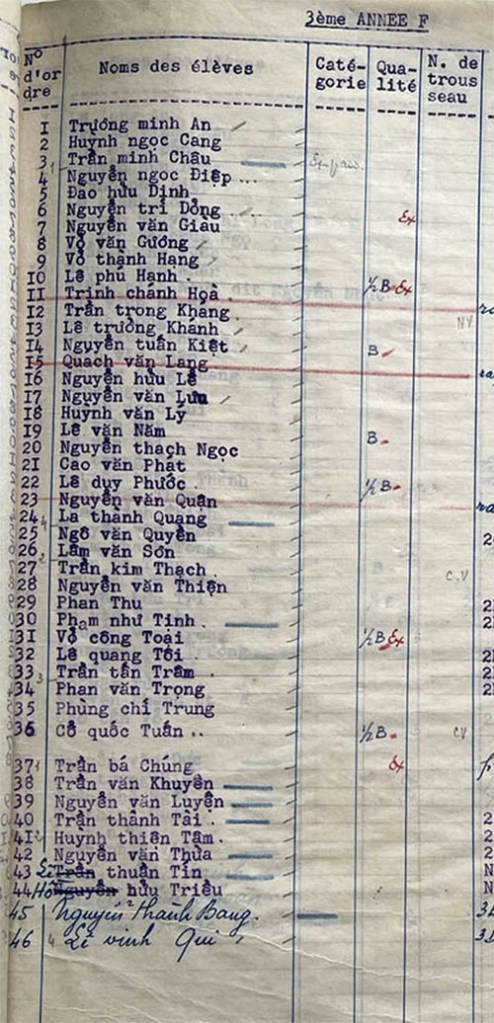 3ème ANNEE F
N° d'or dre | Noms des élèves | Caté- gorie | Qua- lité | N. de trous seau
I Trương minh An
2 Huỳnh ngọc Cang
3 Trần minh Châu
4 Nguyễn ngọc Điệp ...
5 Đào hữu Dinh
6 Nguyễn trí Dõng . Ex
7 Nguyễn văn Giàu
8 Võ văn Gương
9 Võ thành Hang
I0 Lê phú Hạnh . ½ B Ex
II Trịnh chánh Hoà .
I2 Trần trọng Khang . NY
I3 Lê trường Khánh
I4 Nguyễn tuấn Kiệt B
I5 Quách văn Lang
I6 Nguyễn hữu Lê
I7 Nguyễn văn Lưu
I8 Huỳnh văn Lý
I9 Lê văn Năm B
20 Nguyễn thạch Ngọc
2I Cao văn Phát
22 Lê duy Phước . ½ B
23 Nguyễn văn Quận
24 La thành Quang
25 Ngô văn Quyền
26 Lâm văn Sơn
27 Trần kim Thạch . C.V
28 Nguyễn văn Thiện
29 Phan Thu
30 Phạm như Tinh .
3I Võ công Toại ½ B Ex
32 Lê quang Tôi .
33 Trần tấn Trâm .
34 Phan văn Trọng
35 Phùng chí Trung
36 Cổ quốc Tuấn .. ½ B CV
37 Trần bá Chúng Ex
38 Trần văn Khuyên
39 Nguyễn văn Luyện
40 Trần thành Tài .
4I Huỳnh thiện Tâm .
42 Nguyễn văn Thừa
43 Lê Trần thuận Tín
44 Hồ Nguyễn hữu Triều
45 Nguyễn Thành Bang.
46 Lê vinh Qui